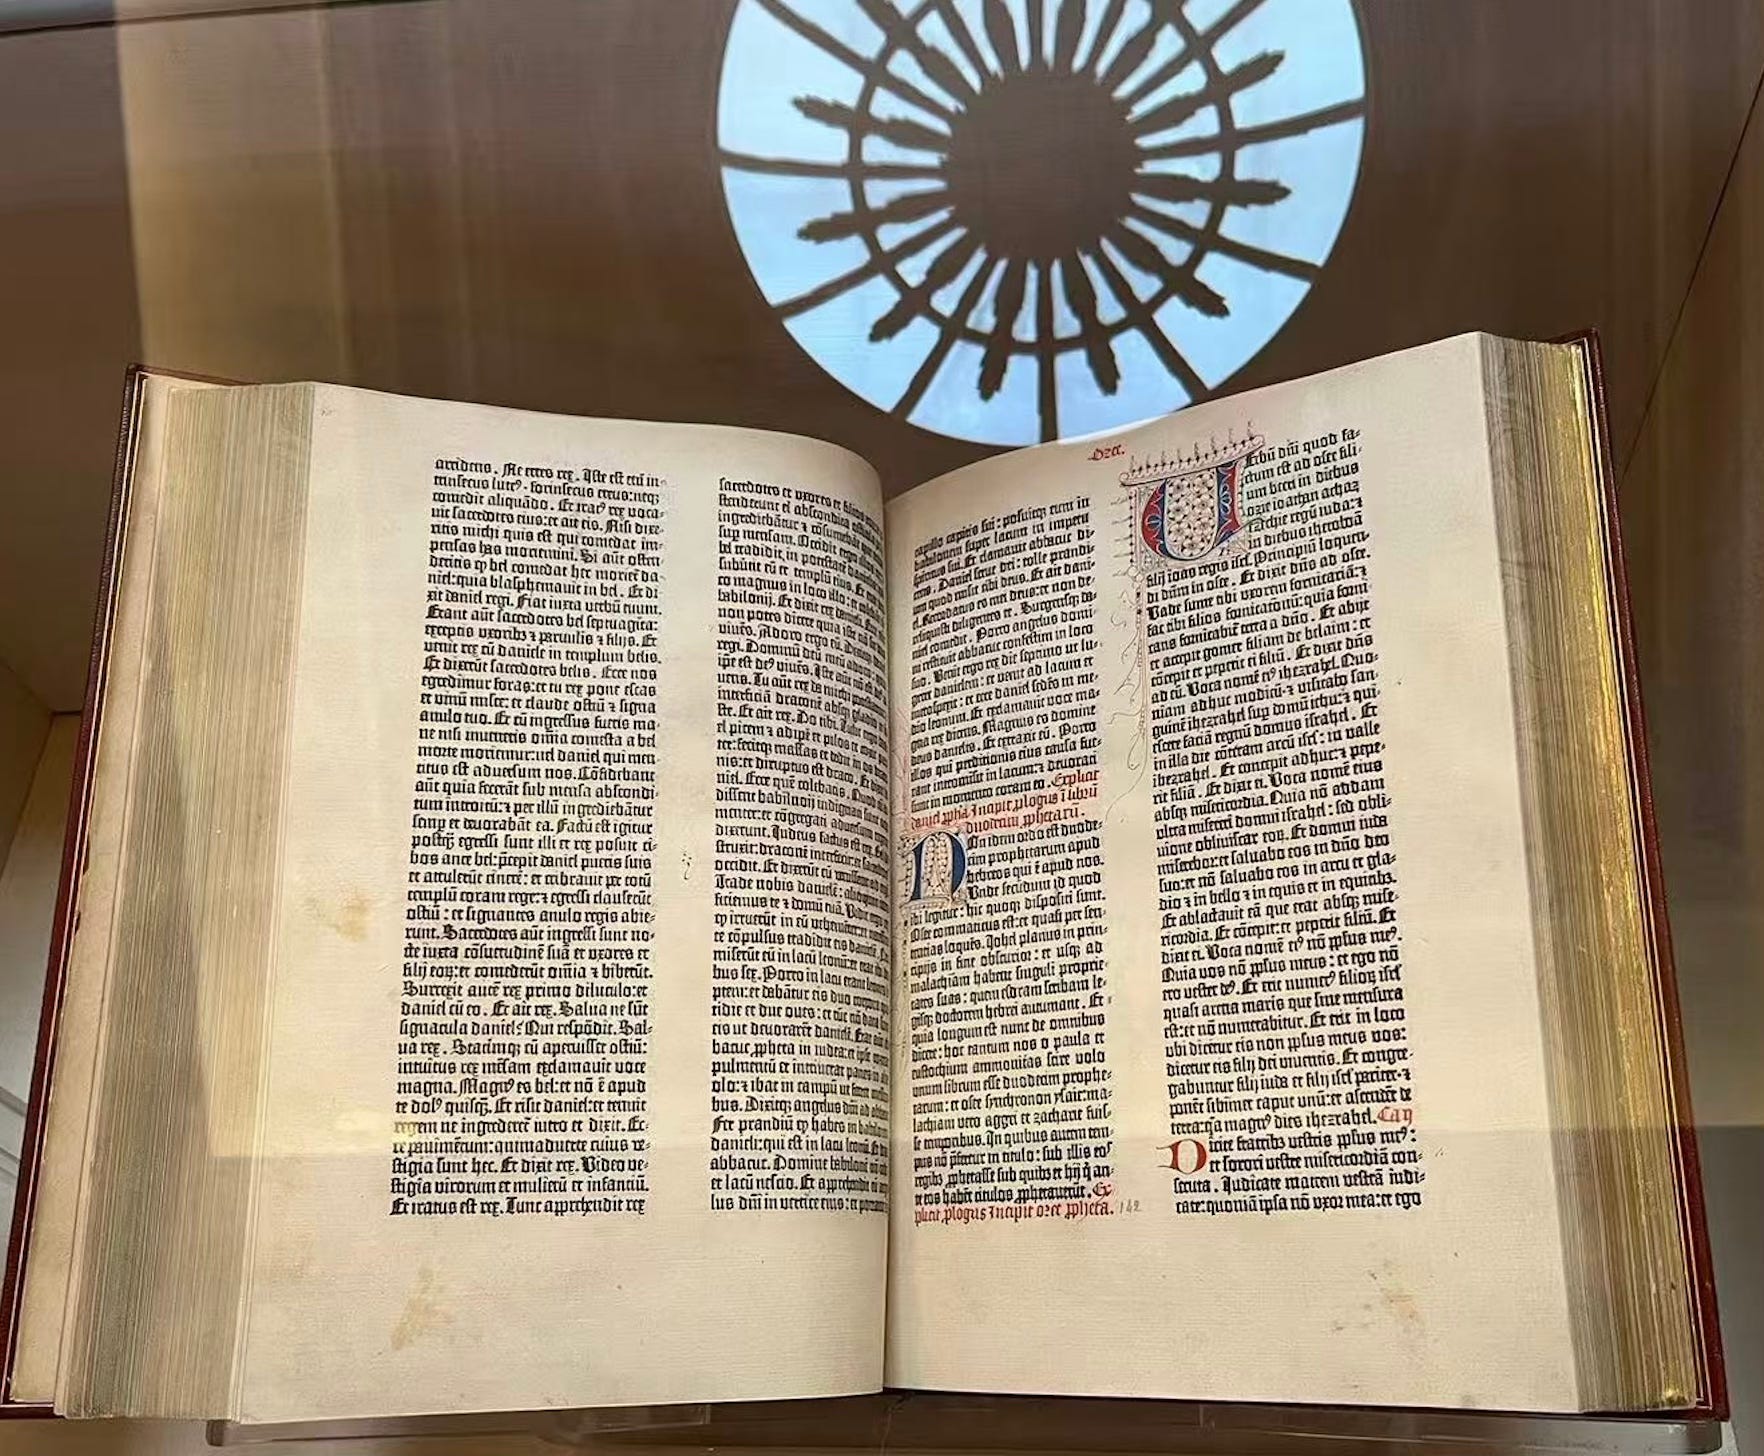 accidens. Ne erres rex. Iste est eni in=
trinsecus lute⁹. forinsecus ereus: neq̨
comedit aliquādo. Et irat⁹ rex voca=
uit sacerdotes eius: et ait eis. Nisi dixe=
ritis michi quis est qui comedat im=
pensas has moriemini. Si aūt osten=
deritis q̨ bel comedat hec moriet̄ da=
niel: quia blasphemauit in bel. Et di=
xit daniel regi. Fiat iuxta verbū tuum.
Erant aūt sacerdotes bel septuaginta:
exceptis vxoribꝫ ⁊ paruulis ⁊ filijs. Et
venit rex cū daniele in templum belis.
Et dixerūt sacerdotes belis. Ecce nos
egredimur foras: et tu rex pone escas
et vinū misce: et claude ostiū ⁊ signa
anulo tuo. Et cū ingressus fueris ma=
ne nisi inueneris omīa comesta a bel
morte moriemur: uel daniel qui men=
titus est aduersum nos. Cōtēdebant
aūt quia fecerāt sub mensa abscondi=
tum introitū: ⁊ per illū ingrediebātur
semꝑ et deuorabāt ea. Factū est igitur
postq̄ egressi sunt illi et rex posuit ci=
bos ante bel: p̄cepit daniel pueris suis
et attulerūt cinerē: et cribrauit ꝑ totū
templū coram rege: ⁊ egressi clauserūt
ostiū: et signantes anulo regis abie=
runt. Sacerdotes aūt ingressi sunt no=
cte iuxta cōsuetudinē suā et vxores et
filij eoꝝ: et comederūt omīa ⁊ biberūt.
Surrexit autē rex primo diluculo: et
daniel cū eo. Et ait rex. Salua ne sūt
signacula daniel? Qui respōdit. Sal=
ua rex. Statimq̨ cū aperuisset ostiū:
intuitus rex mēsam exclamauit voce
magna. Magn⁹ es bel: et nō ē apud
te dol⁹ quisq̄. Et risit daniel: et tenuit
regem ne ingrederet̄ intro et dixit. Ec=
ce pauimētum: animaduerte cuius ve=
stigia sunt hec. Et dixit rex. Video ve=
stigia virorum et mulierū et infantiū.
Et iratus est rex. Tunc apprehendit rex
sacerdotes et vxores et filios
ingrediebātur ⁊ cōsumebāt
sup mensam. Occidit ergo
bel tradidit in potestatē
subūtit eū et templū eius. Et
co magnus in loco illo: et
babilonij. Et dixit rex danieli.
non potes dicere quia iste nō
viuēs. Adora ergo eū.
regi. Dominū deū meū adoro
ipē est de⁹ viuēs. Iste aūt nō est
uens. Tu aūt rex da michi
interficiā draconē absq̨ gladio
ste. Et ait rex. Do tibi. Tulit ergo
el picem ⁊ adipē et pilos et
ter: fecitq̨ massas et dedit in os
nis: et diruptus est draco. Et dixit
niel. Ecce quē colebatis.
dissent babilonij indignati sunt
menter: et cōgregati aduersum
dixerunt. Iudeus factus est rex.
struxit: draconē interfecit: et
occidit. Et dixerūt cū venissent
Trade nobis danielē: alioquin
ficiemus te ⁊ domū tuā. Vidit
q̨ irruerūt in eū vehementer: et
te cōpulsus tradidit eis danielē.
miserūt eū in lacū leonū: et erat
bus sex. Porro in lacu erant leones
ptem: et dabātur eis duo corpora
tidie et due oues: et tūc nō data
eis ut deuorarēt danielē. Erat aūt
bacuc ꝓpheta in iudea: et ipse
pulmentū et intriuerat panes in
olo: ⁊ ibat in campū ut ferret
bus. Dixitq̨ angelus dn̄i ad
Fer prandiū q̨ habes in
danieli: qui est in lacu leonū. Et
abbacuc. Domine babilonē nō
et lacū nescio. Et apprehendit eū
lus dn̄i in vertice eius: et portauit
Ozee.
capillo capitis sui: posuitq̨ eum in
babilonem super lacum in impetu
spiritus sui. Et clamauit abbacuc di=
cens. Daniel serue dei: tolle prandi=
um quod misit tibi deus. Et ait dani=
el. Recordatus es mei deus: et non de=
reliquisti diligentes te. Surgensq̨ da=
niel comedit. Porro angelus domi=
ni restituit abbacuc confestim in loco
suo. Venit ergo rex die septimo ut lu=
geret danielem: et venit ad lacum et
introspexit: et ecce daniel sedēs in me=
dio leonum. Et exclamauit voce ma=
gna rex dicens. Magnus es domine
deus danielis. Et extraxit eū. Porro
illos qui perditionis eius causa fue=
rant intromisit in lacum: ⁊ deuorati
sunt in momento coram eo. Explicit
daniel ꝓpha. Incipit ꝓlogus ī librū
duodecim ꝓphetarū.
Non idem ordo est duode=
cim prophetarum apud
hebreos qui ē apud nos.
Vnde secūdum id quod
ibi legitur: hic quoq̨ dispositi sunt.
Osee commaticus est: et quasi per sen=
tentias loquēs. Iohel planus in prin=
cipijs in fine obscurior: et usq̨ ad
malachiam habent singuli proprie=
tates suas: quem esdram scribam le=
gisq̨ doctorem hebrei autumant. Et
quia longum est nunc de omnibus
dicere: hoc tantum uos o paula et
eustochium ammonitas fore volo
unum librum esse duodecim prophe=
tarum: et osee synchronon ysaie: ma=
lachiam vero aggei et zacharie fuis=
se temporibus. In quibus autem tem=
pus nō p̄fertur in titulo: sub illis eos
regibꝫ ꝓphetasse sub quibꝫ et hij q̄ an=
te eos habēt titulos ꝓphetauerūt. Ex
plicit ꝓlogus Incipit ozee ꝓpheta.
142
Verbū dn̄i quod fa=
ctum est ad osee fili=
um beeri in diebus
ozie ioathan achaz
ezechie regū iuda: ⁊
in diebus iheroboā
filij ioas regis isr̄l. Principiū loquen=
di dn̄m in osee. Et dixit dn̄s ad osee.
Vade sume tibi uxorem fornicariā: ⁊
fac tibi filios fornicationū: quia forni=
cans fornicabit̄ terra a dn̄o. Et abijt
et accepit gomer filiam debelaim: et
cōcepit et peperit ei filiū. Et dixit dn̄s
ad eū. Voca nomē ei⁹ ihezrahel. Quo=
niam adhuc modicū: ⁊ visitabo san=
guinē ihezrahel sup domū ihu: ⁊ qui=
escere faciā regnū domus israhel. Et
in illa die cōteram arcū isr̄l: in valle
ihezrahel. Et concepit adhuc: ⁊ pepe=
rit filiā. Et dixit ei. Voca nomē eius
absq̨ misericordia. Quia nō addam
ultra misereri domui israhel: sed obli=
uione obliuiscar eoꝝ. Et domui iuda
miserebor: et saluabo eos in dn̄o deo
suo: et nō saluabo eos in arcu et gla=
dio ⁊ in bello ⁊ in equis et in equitibꝫ.
Et ablactauit eā que erat absq̨ mise=
ricordia. Et cōcepit: et peperit filiū. Et
dixit ei. Voca nomē ei⁹ nō ppl̄us me⁹.
Quia uos nō ppl̄us meus: et ego nō
ero uester de⁹. Et erit numer⁹ filioꝝ isr̄l
quasi arena maris que sine mensura
est: et nō numerabitur. Et erit in loco
ubi dicetur eis non ppl̄us meus uos:
dicetur eis filij dei uiuentis. Et congre=
gabuntur filij iuda et filij isr̄l pariter: ⁊
ponēt sibimet caput unū: et ascendēt de
terra: q̄a magn⁹ dies ihezrahel. Cap̄
Dicite fratribꝫ uestris ppl̄us me⁹:
et sorori uestre misericordiā con=
secuta. Iudicate matrem uestrā iudi=
cate: quoniā ipsa nō uxor mea: et ego